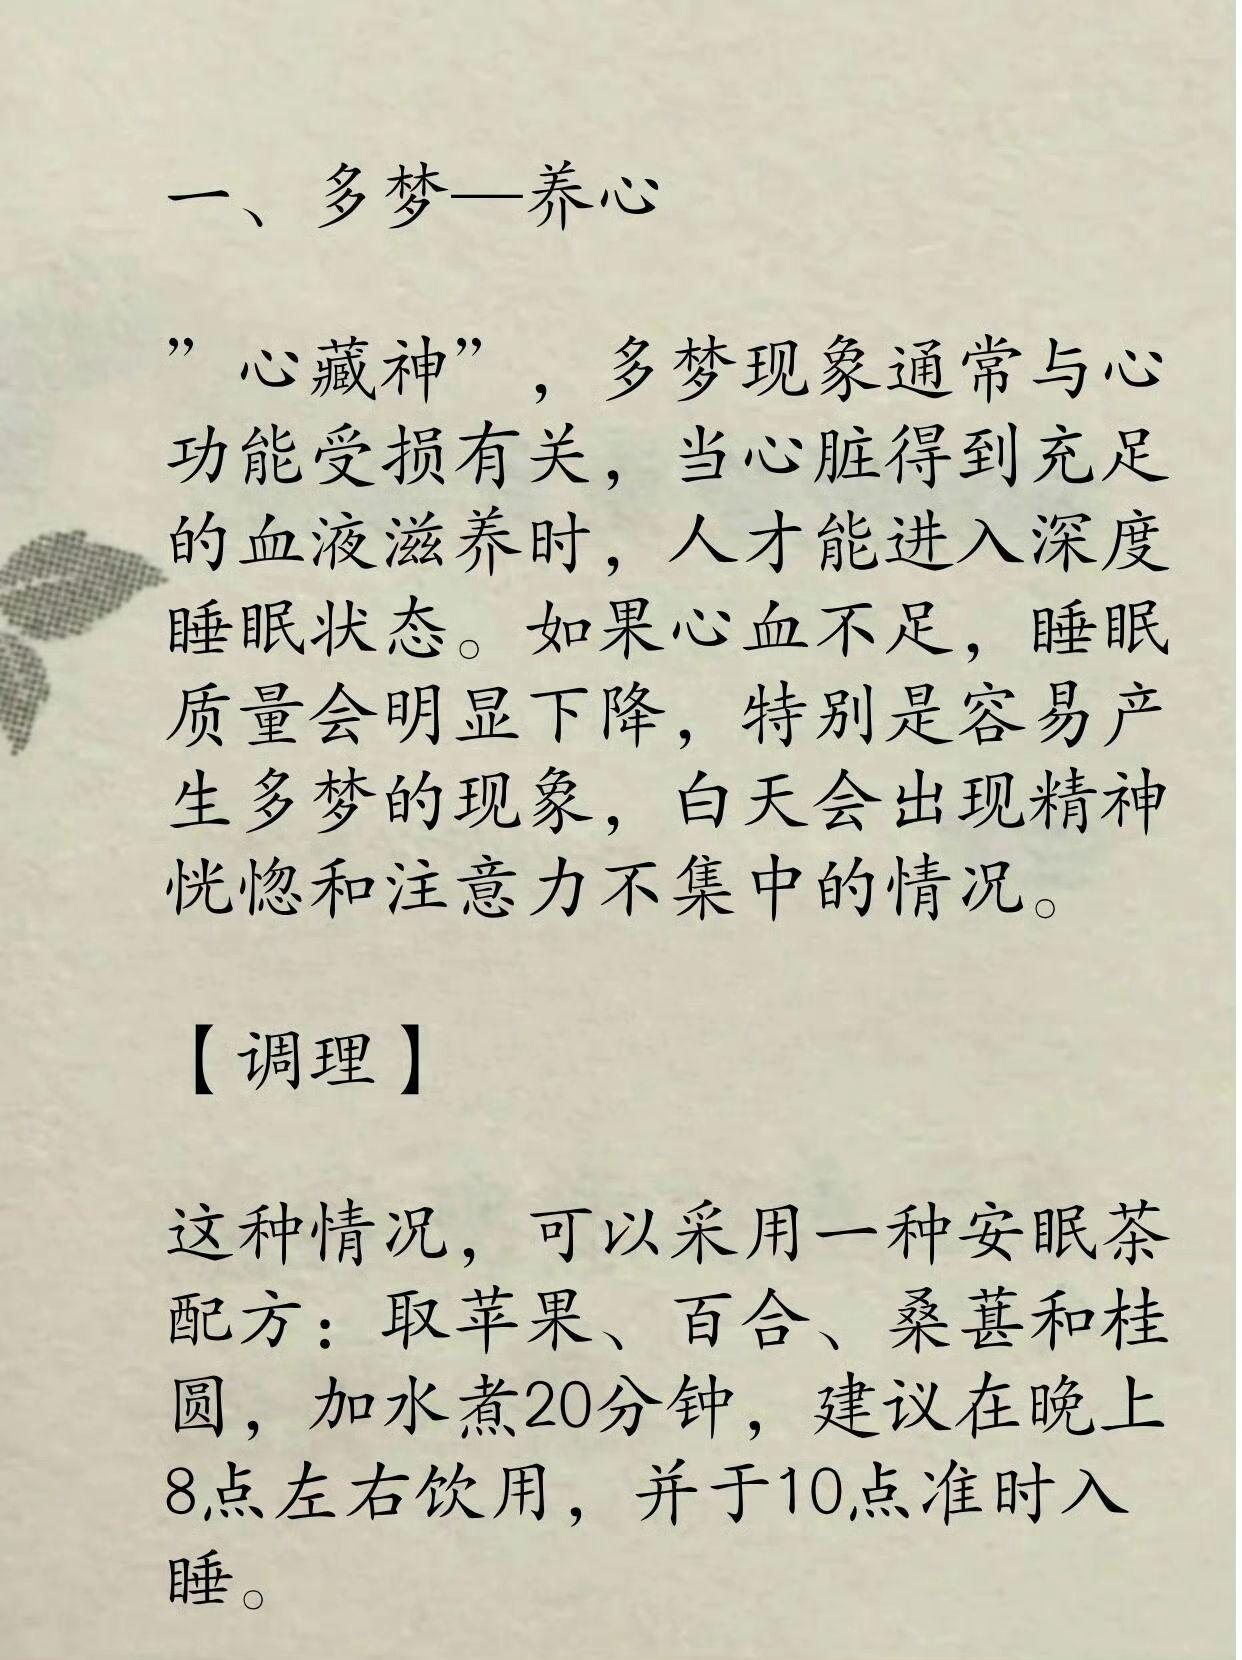 一、多梦—养心
”心藏神”，多梦现象通常与心
功能受损有关，当心脏得到充足
的血液滋养时，人才能进入深度
睡眠状态。如果心血不足，睡眠
质量会明显下降，特别是容易产
生多梦的现象，白天会出现精神
恍惚和注意力不集中的情况。
【调理】
这种情况，可以采用一种安眠茶
配方：取苹果、百合、桑葚和桂
圆，加水煮20分钟，建议在晚上
8点左右饮用，并于10点准时入
睡。